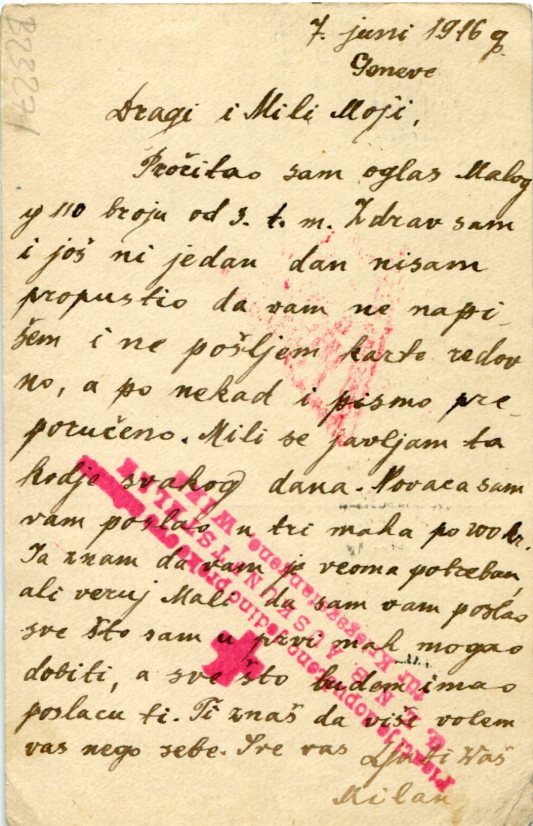 B23271
7. juni 1916 g
Geneve
Dragi i Mili Moji,
Pročitao sam oglas Malog
y 110 broju od 3. t. m. Zdrav sam
i još ni jedan dan nisam
propustio da vam ne napi-
šem i ne pošljem karte redov
no, a po nekad i pismo pre-
poručeno. Mili se javljam ta
kodje svakog dana. Novaca sam
vam poslao u tri maha po 100 kr.
Ja znam da vam je veoma potreban,
ali veruj Mali da sam vam poslao
sve što sam u prvi mah mogao
dobiti, a sve što budem imao
poslacu ti. Ti znaš da više volem
vas nego sebe. Sve vas Ljubi Vaš
Milan
Pisanje dopušteno jedino preko
AUSKUNFTSTELLE
für Kriegsgefangene WIEN